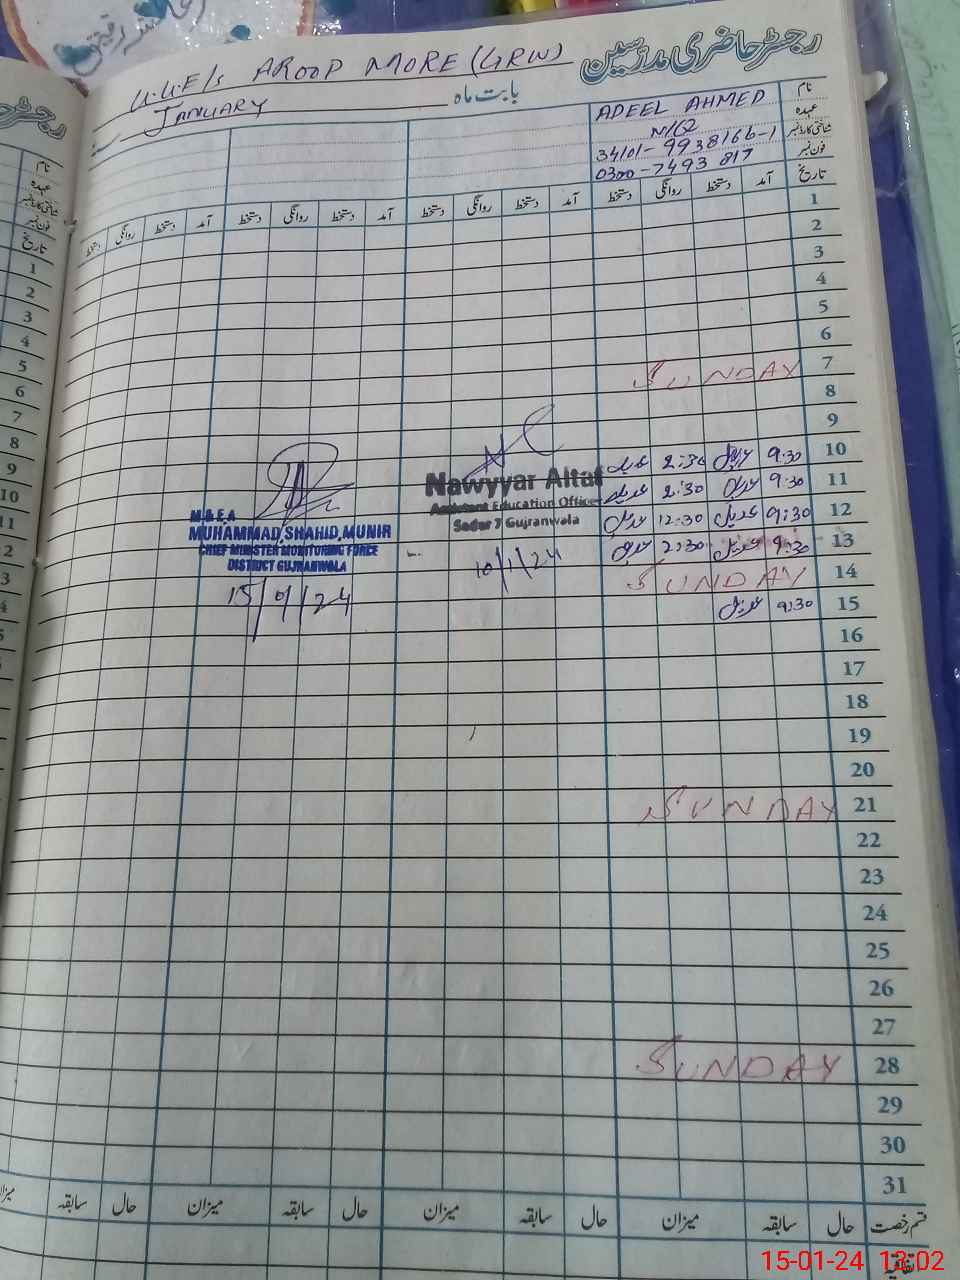 رجسٹر حاضری مدرسین
G.G.E/s AROOP MORE (GRW)
بابت ماہ JANUARY
نام ADEEL AHMED
عہدہ N/Q
شناختی کارڈ نمبر 34101-9938166-1
فون نمبر 0300-7493 817
تاریخ آمد دستخط روانگی دستخط آمد دستخط روانگی دستخط آمد دستخط روانگی دستخط
1
2
3
4
5
6
7 SUNDAY
8
9
10 9:30 عدیل 2:30 عدیل
11 9:30 عدیل 2:30 عدیل
12 9:30 عدیل 12:30 عدیل
13 9:30 عدیل 2:30 عدیل
14 SUNDAY
15 9:30 عدیل
16
17
18
19
20
21 SUNDAY
22
23
24
25
26
27
28 SUNDAY
29
30
31
Nawyyar Altaf
Assistant Education Officer
Sadar 7 Gujranwala
10/1/24
M & E.A
MUHAMMAD SHAHID MUNIR
CHIEF MINISTER MONITORING FORCE
DISTRICT GUJRANWALA
15/01/24
قسم رخصت حال سابقہ میزان حال سابقہ میزان حال سابقہ میزان حال سابقہ
اتفاقیہ
نام
عہدہ
شناختی کارڈ نمبر
فون نمبر
تاریخ
1
2
3
4
5
6
7
8
9
10
15-01-24 13:02